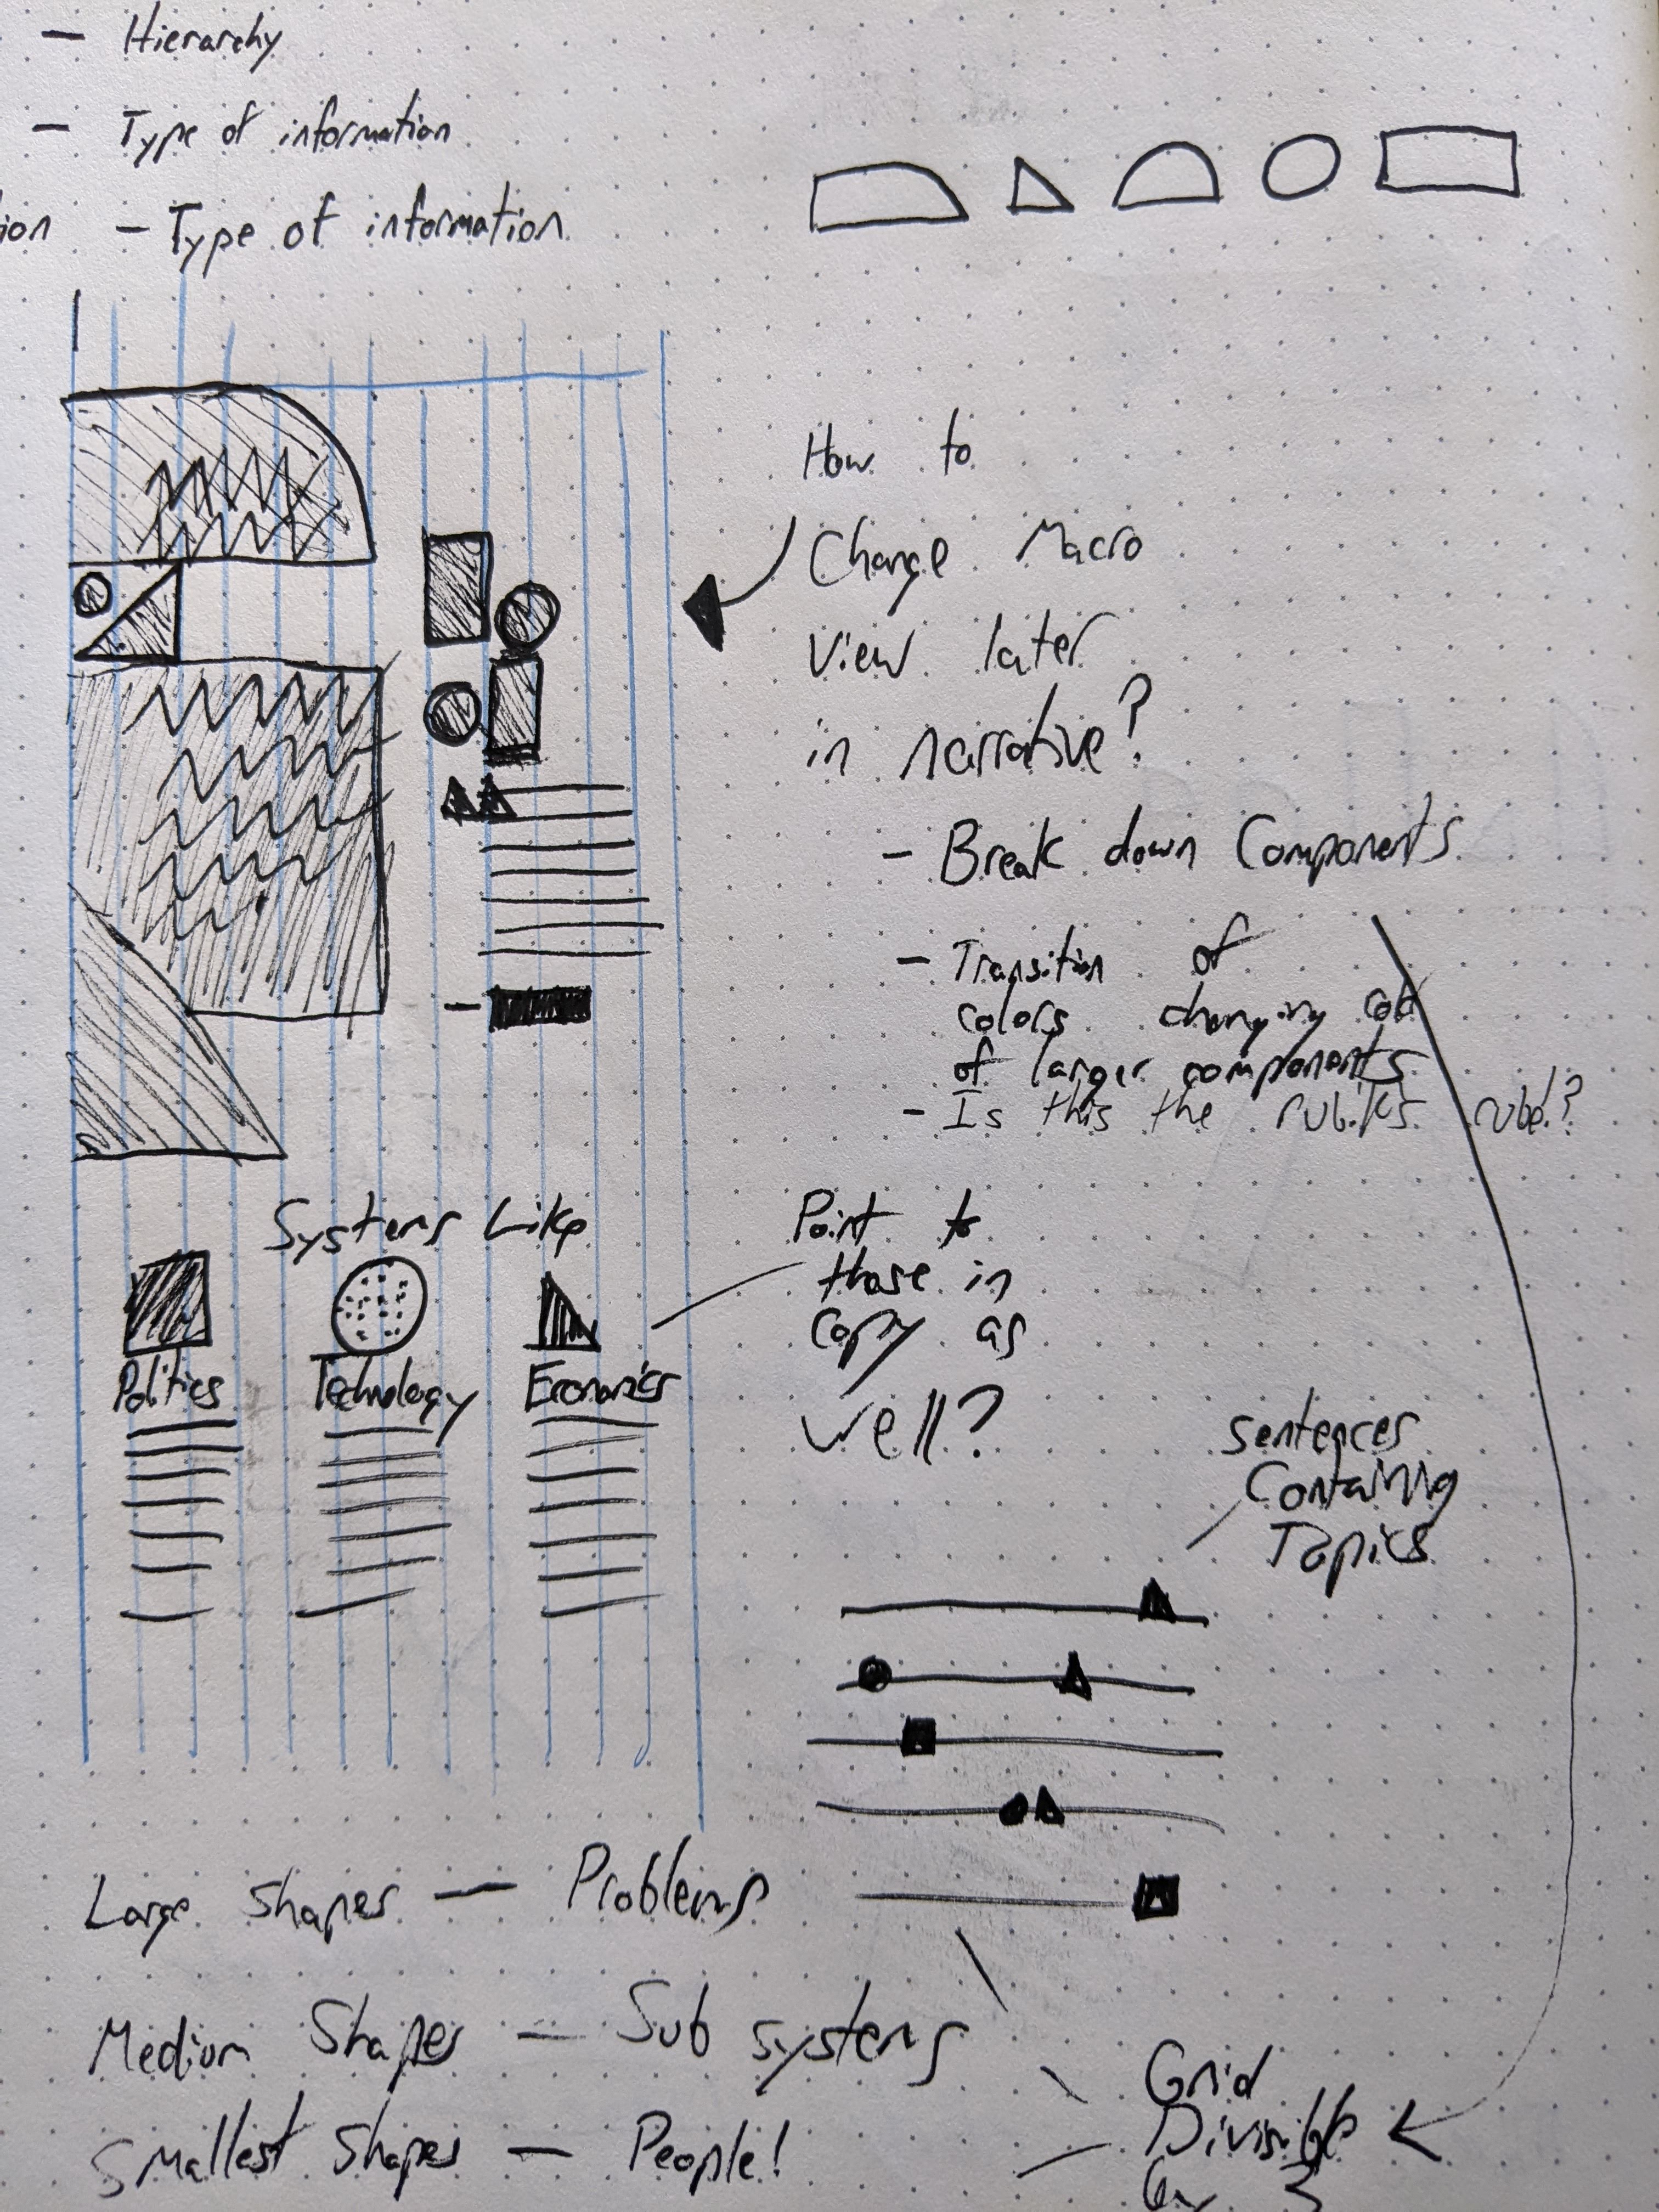 — Hierarchy
— Type of information
ion — Type of information
How to
Change Macro
View later
in narrative?
- Break down Components
- Transition of
colors changing
of larger components
- Is this the rubiks cube?
Systems Like
Politics
Technology
Economics
Point to
those in
copy as
well?
Sentences
Containing
Topics
Large Shapes — Problems
Medium Shapes — Sub systems
Smallest Shapes — People!
Grid
Divisible
by 3